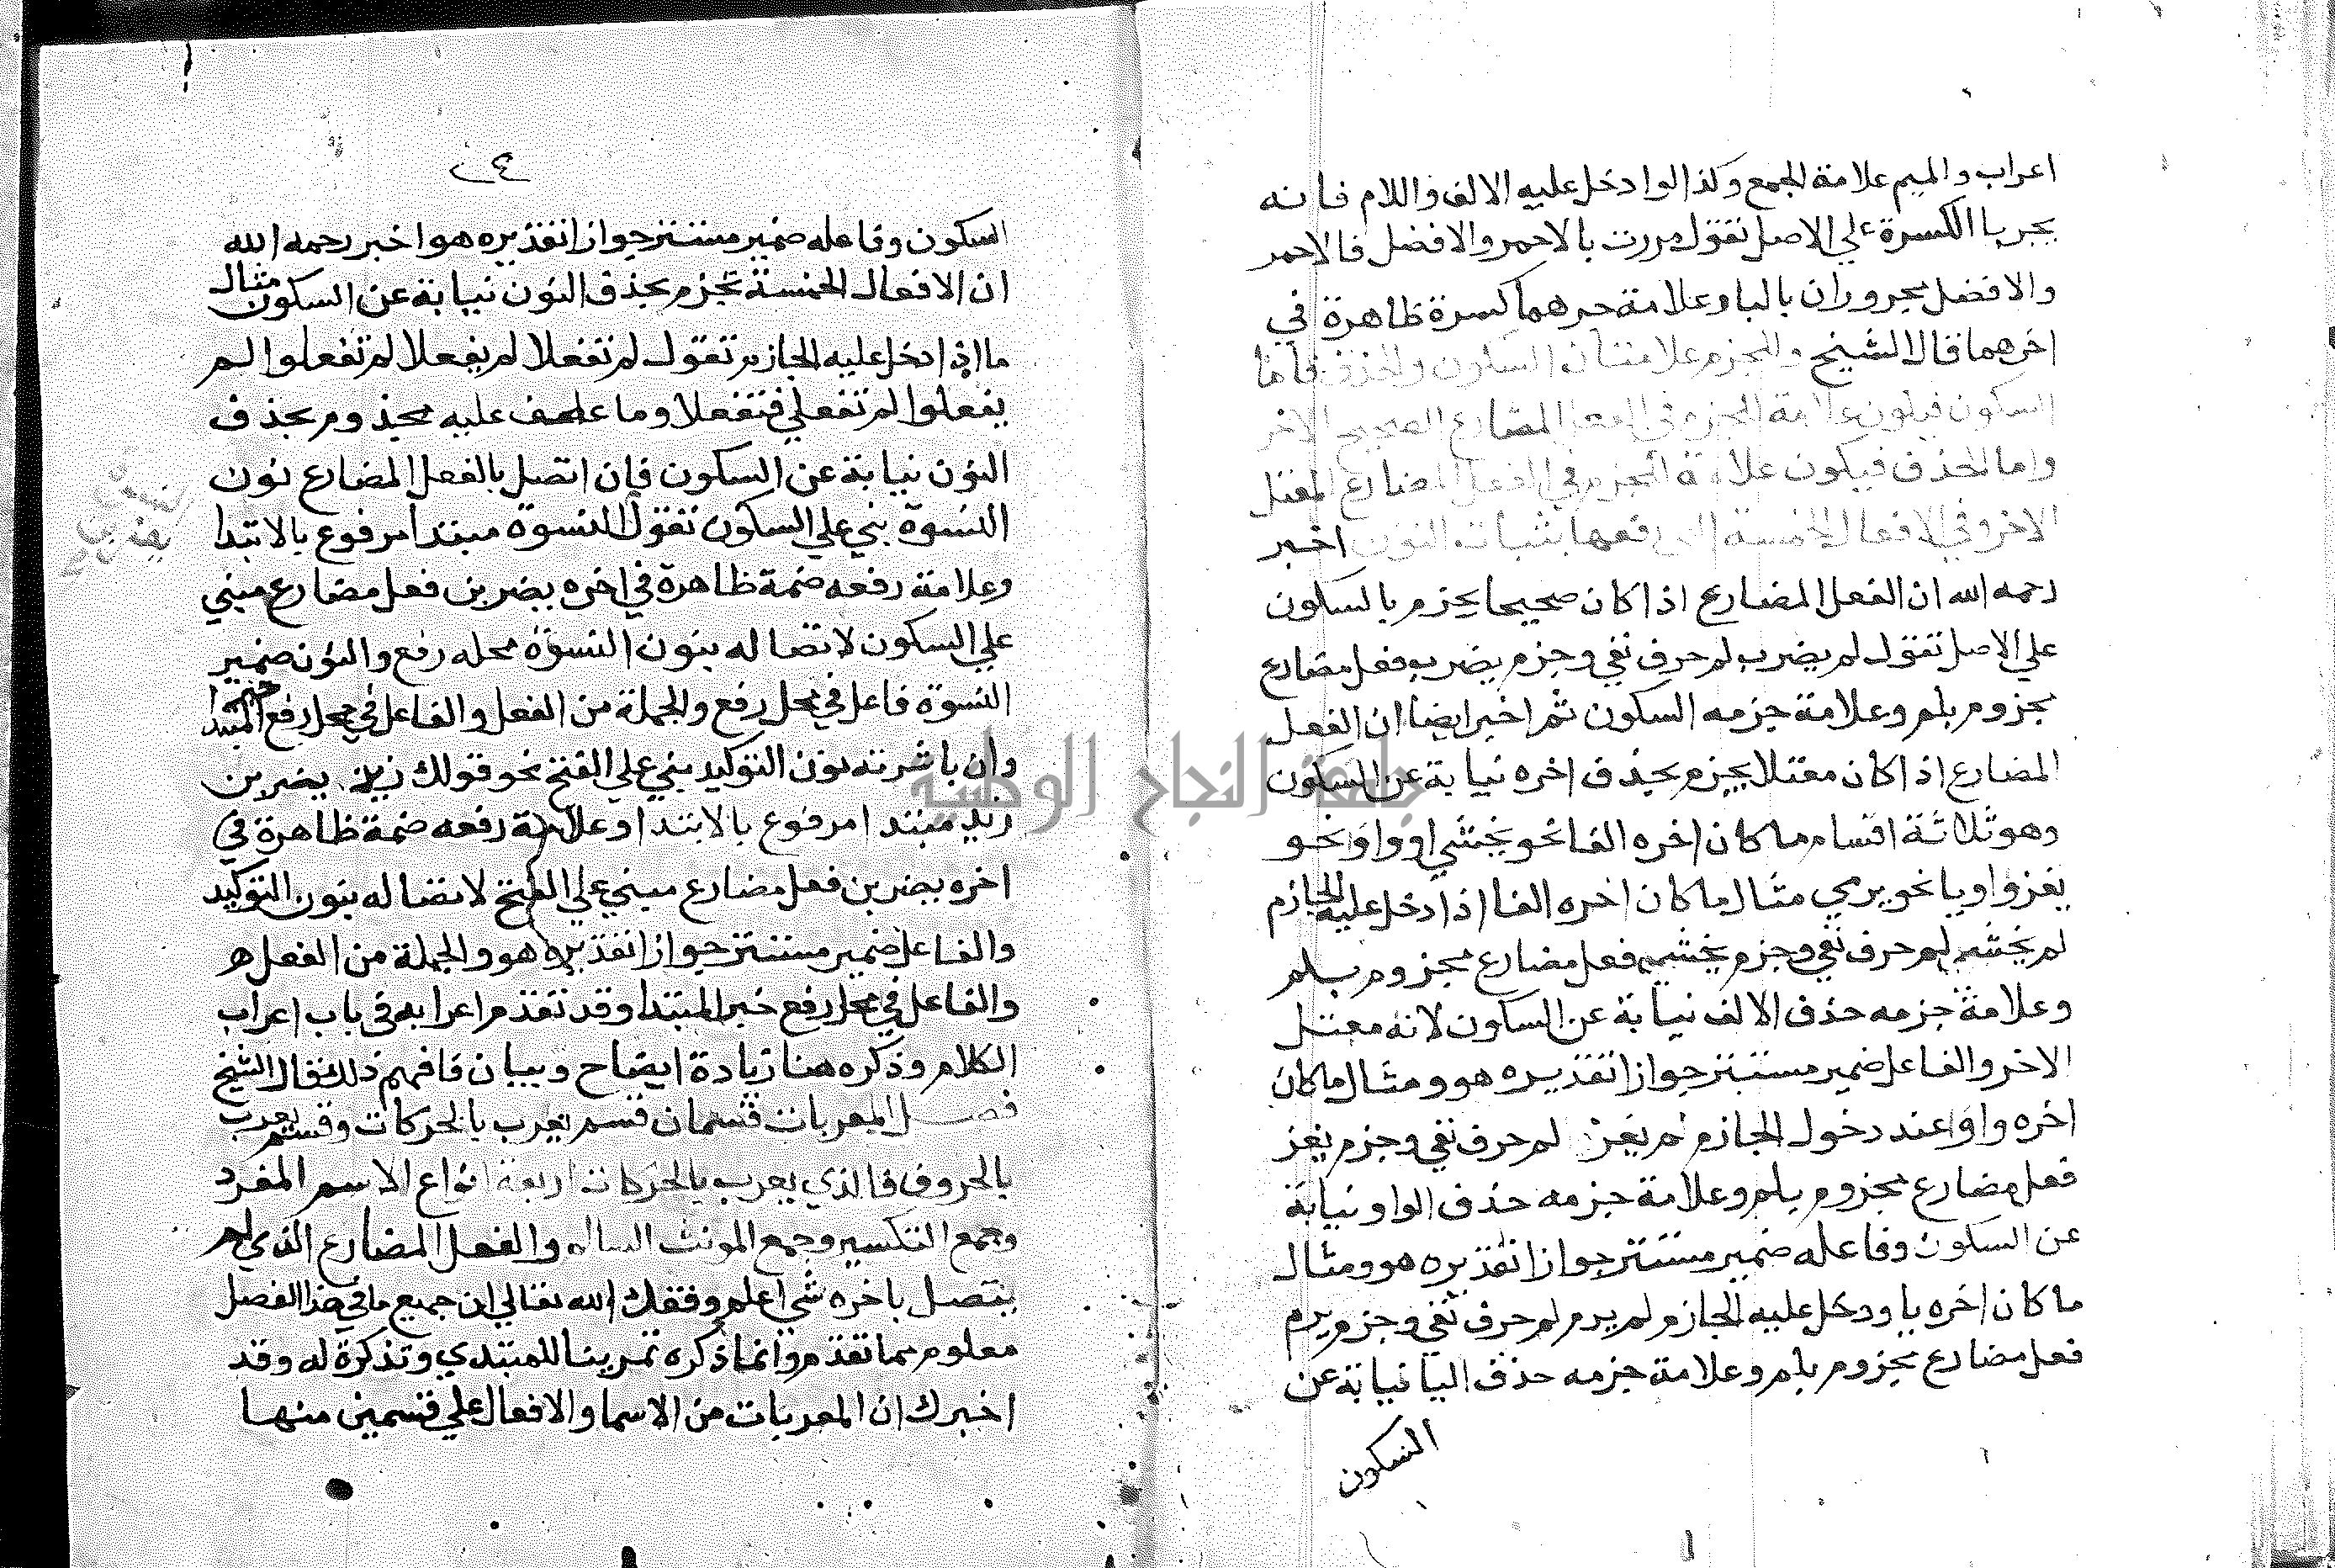 اعراب والميم علامة الجمع وكذا لوا دخل عليه الالف واللام فانه
يجر با الكسرة علي الاصل تقول مررت بالاحمر والافضل فالاحمر
والافضل مجروران بالبا وعلامة جرهما كسرة ظاهرة في
اخرهما قال الشيخ وللجزم علامتان السكون والحذف فاما
السكون فيكون علامة للجزم في الفعل المضارع الصحيح الاخر
واما الحذف فيكون علامة للجزم في الفعل المضارع المعتل
الاخر وفي الافعال الخمسة التي رفعها بثبات النون اخبر
رحمه الله ان الفعل المضارع اذا كان صحيحا يجزم بالسكون
علي الاصل تقول لم يضرب لم حرف نفي وجزم يضرب فعل مضارع
مجزوم بلم وعلامة جزمه السكون ثم اخبر ايضا ان الفعل
المضارع اذا كان معتلا يجزم بحذف اخره نيابة عن السكون
وهو ثلاثة اقسام ما كان اخره الفا نحو يخشي او واوا نحو
يغزوا ويا نحو يرمي مثال ما كان اخره الفا اذا دخل عليه الجازم
لم يخش لم حرف نفي وجزم يخش فعل مضارع مجزوم بلم
وعلامة جزمه حذف الالف نيابة عن السكون لانه معتل
الاخر والفاعل ضمير مستتر جوازا تقديره هو ومثال ما كان
اخره واوا عند دخول الجازم لم يغز لم حرف نفي وجزم يغز
فعل مضارع مجزوم بلم وعلامة جزمه حذف الواو نيابة
عن السكون وفاعله ضمير مستتر جوازا تقديره هو ومثال
ما كان اخره يا ودخل عليه الجازم لم يرم لم حرف نفي وجزم يرم
فعل مضارع مجزوم بلم وعلامة جزمه حذف اليا نيابة عن
السكون
السكون وفاعله ضمير مستتر جوازا تقديره هو اخبر رحمه الله
ان الافعال الخمسة تجزم بحذف النون نيابة عن السكون مثال
ما اذا دخل عليه الجازم تقول لم تفعلا لم يفعلا لم تفعلوا لم
يفعلوا لم تفعلي فتفعلا وما عطف عليه مجزوم بحذف
النون نيابة عن السكون فان اتصل بالفعل المضارع نون
النسوة بني علي السكون تقول النسوة مبتدا مرفوع بالابتدا
وعلامة رفعه ضمة ظاهرة في اخره يضربن فعل مضارع مبني
علي السكون لاتصاله بنون النسوة محله رفع والنون ضمير
النسوة فاعل في محل رفع والجملة من الفعل والفاعل في محل رفع خبر المبتدا
وان باشرته نون التوكيد بني علي الفتح نحو قولك زيد يضربن
زيد مبتدا مرفوع بالابتدا وعلامة رفعه ضمة ظاهرة في
اخره يضربن فعل مضارع مبني علي الفتح لاتصاله بنون التوكيد
والفاعل ضمير مستتر جوازا تقديره هو والجملة من الفعل
والفاعل في محل رفع خبر المبتدا وقد تقدم اعرابه في باب اعراب
الكلام وذكره هنا زيادة ايضاح وبيان فافهم ذلك قال الشيخ
فصل المعربات قسمان قسم يعرب بالحركات وقسم يعرب
بالحروف فالذي يعرب بالحركات اربعة انواع الاسم المفرد
وجمع التكسير وجمع المونث السالم والفعل المضارع الذي لم
يتصل باخره شي اعلم وفقك الله تعالي ان جميع ما في هذا الفصل
معلوم مما تقدم وانما ذكره تمرينا للمبتدي وتذكرة له وقد
اخبرك ان المعربات من الاسما والافعال علي قسمين منها
جامعة النجاح الوطنية